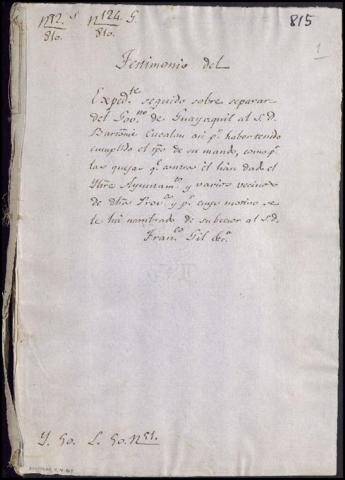 nº 2. S nº 124. G. 815
810. 810. 1
Testimonio del
Exped.te seguido sobre separar
del Gov.no de Guayaquil al S.D.
Bartomé Cucalon asi p.r haber tenido
cumplido el tpo de su mando, como p.r
las quejas q.e contra él han dado el
Iltre Ayuntam.to y varios vecinos
de dha Prov.a y p.r cuyo motivo se
le ha nombrado de subcesor al S.D.
Fran.co Gil &c.a
Y. 50. L. 50. nº 51.